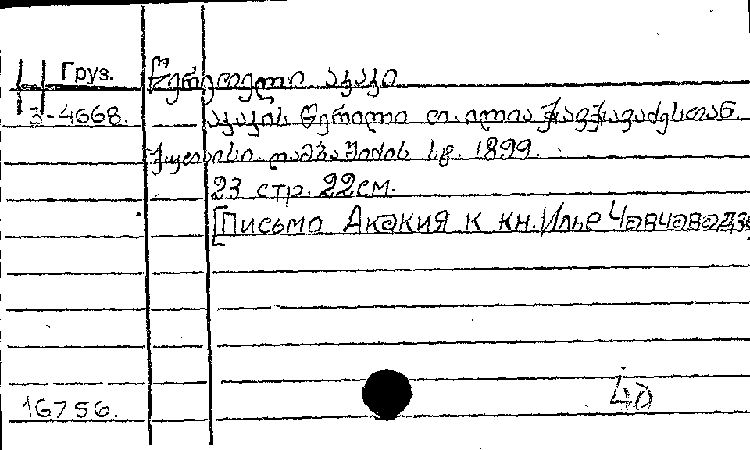 Ц Груз.
3-4668.
წერეთელი აკაკი
აკაკის წერილი თ. ილია ჭავჭავაძესთან
სტ. 1899.
23 стр. 22см.
[Письмо Акакия к кн. Илье Чавчавадзе
16756.